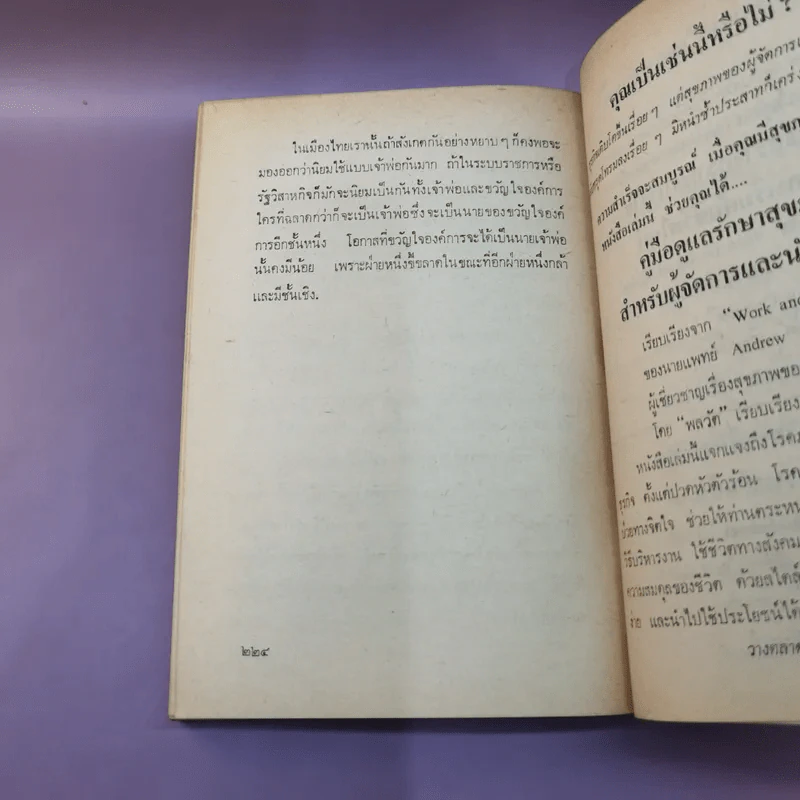 ในเมืองไทยเรานั้นถ้าสังเกตกันอย่างหยาบ ๆ ก็คงพอจะ
มองออกว่านิยมใช้แบบเจ้าพ่อกันมาก ถ้าในระบบราชการหรือ
รัฐวิสาหกิจก็มักจะนิยมเป็นกันทั้งเจ้าพ่อและขวัญใจองค์การ
ใครที่ฉลาดกว่าก็จะเป็นเจ้าพ่อซึ่งจะเป็นนายของขวัญใจองค์
การอีกชั้นหนึ่ง โอกาสที่ขวัญใจองค์การจะได้เป็นนายเจ้าพ่อ
นั้นคงมีน้อย เพราะฝ่ายหนึ่งขี้ขลาดในขณะที่อีกฝ่ายหนึ่งกล้า
และมีชั้นเชิง.
๒๒๔
คุณเป็นเช่นนี้หรือไม่ ?
แต่สุขภาพของผู้จัดการ
ทรุดโทรมลงเรื่อย ๆ มีหนำซ้ำประสาทก็เคร่ง
ความสำเร็จจะสมบูรณ์ เมื่อคุณมีสุขภ
หนังสือเล่มนี้ ช่วยคุณได้....
คู่มือดูแลรักษาสุข
สำหรับผู้จัดการและน
เรียบเรียงจาก "Work and
ของนายแพทย์ Andrew
ผู้เชี่ยวชาญเรื่องสุขภาพของ
โดย "พลวัต" เรียบเรียง
หนังสือเล่มนี้แจกแจงถึงโรค
ธุรกิจ ตั้งแต่ปวดหัวตัวร้อน โรค
ป่วยทางจิตใจ ช่วยให้ท่านตระหน
วิธีบริหารงาน ใช้ชีวิตทางสังคม
ความสมดุลของชีวิต ด้วยสไตล์
ง่าย และนำไปใช้ประโยชน์ได้
วางตลาด